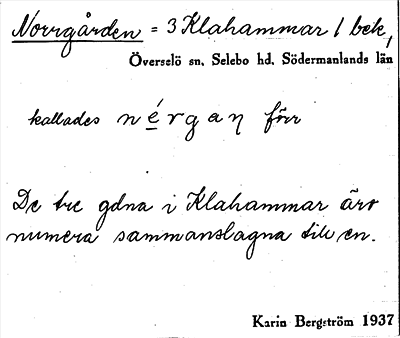 Norrgården = 3 Klahammar / bek,
Överselö sn, Selebo hd, Södermanlands län
kallades né̱rgaŋ förr
De tre gdna i Klahammar äro
numera sammanslagna till en.
Karin Bergström 1937